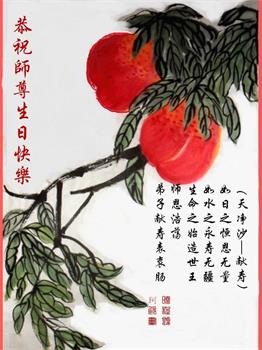 恭祝師尊生日快樂
(天净沙—献寿)
如日之恒恩无量
如水之永寿无疆
生命之始造世王
师恩浩荡
弟子献寿表衷肠